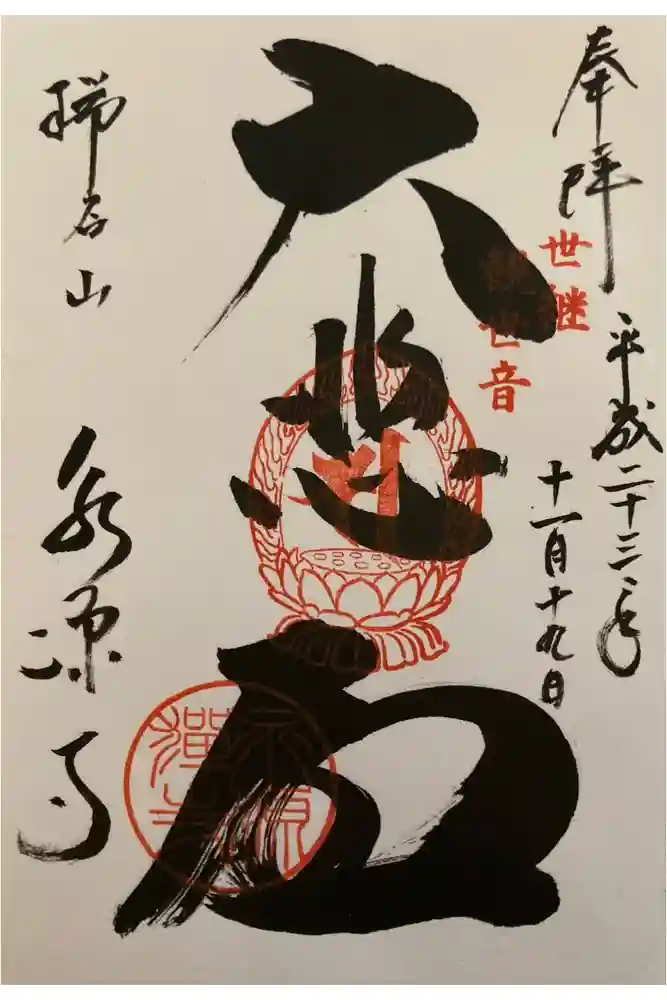 奉拝
平成二十三年
十一月十九日
世継
観世音
大悲
瑞石山
永源寺
永源
禅寺